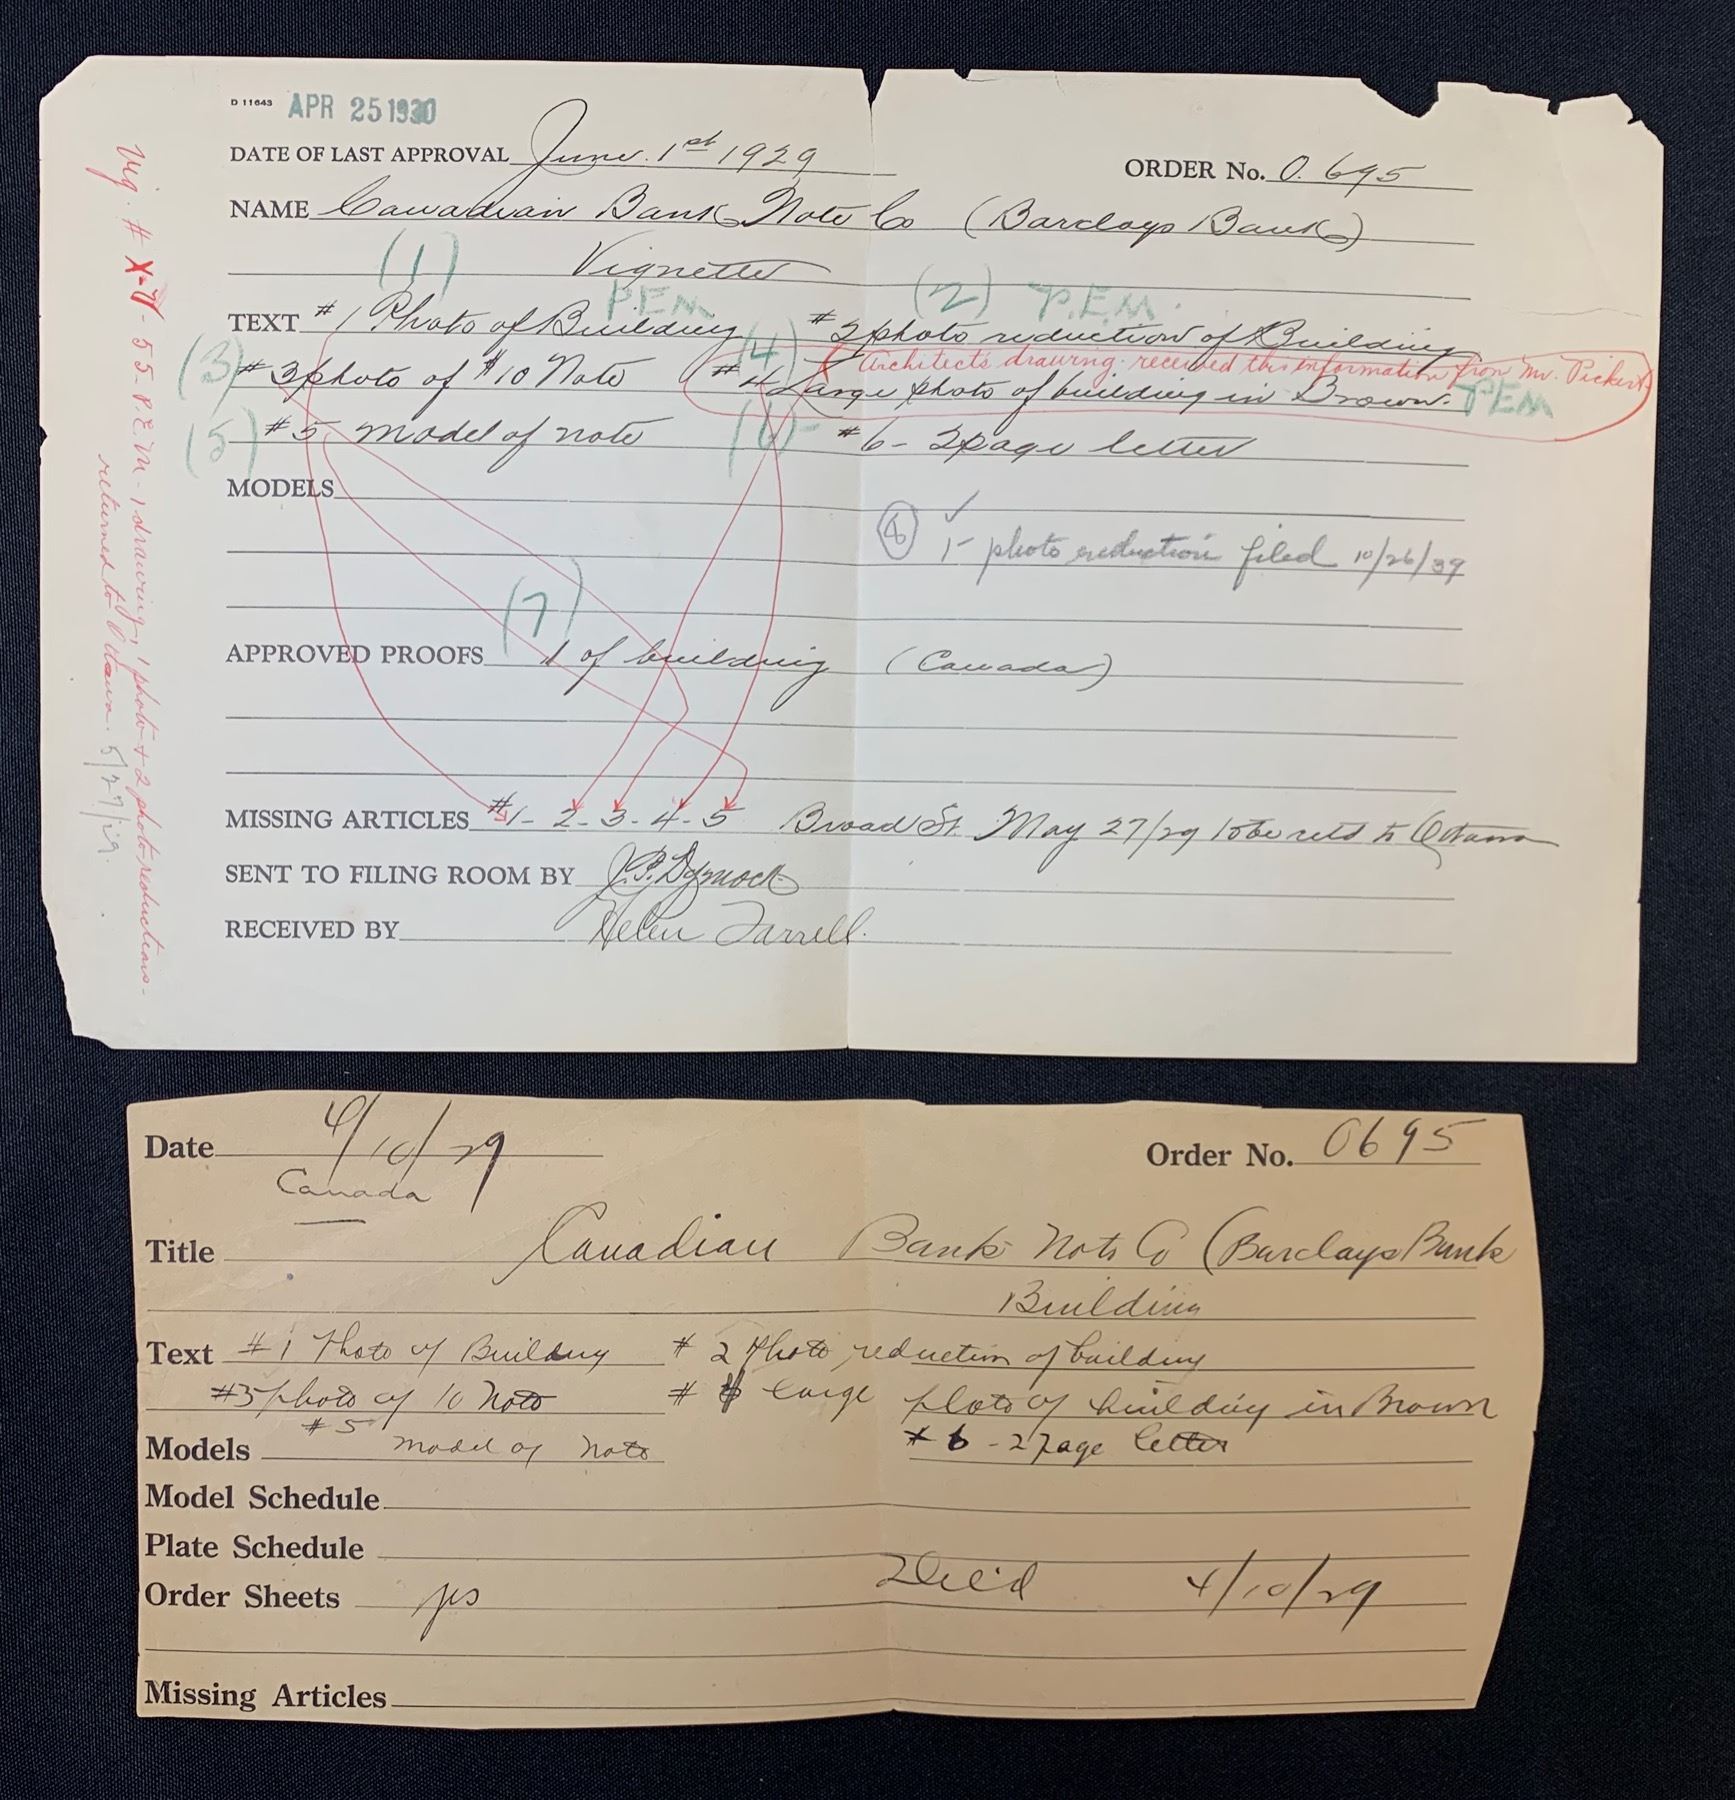 D 11643 APR 25 1930
DATE OF LAST APPROVAL June 1st 1929 ORDER No. O. 695
NAME Canadian Bank Note Co (Barclays Bank)
(1) Vignette
P.E.M. (2) P.E.M.
TEXT #1 Photo of Building #2 photo reduction of Building
Architect's drawing. received this information from Mr. Pickert.
(3) #3 photo of $10 Note (4) #4 Large photo of building in Brown. PEM
(5) #5 model of note (6) #6 - 2 page letter
MODELS
(8) ✓
1- photo reduction filed 10/26/39
(7)
APPROVED PROOFS 1 of building (Canada)
MISSING ARTICLES #1- 2- 3- 4- 5 Broad St. May 27/29 to be retd to Ottawa
SENT TO FILING ROOM BY J.P. Dymock
RECEIVED BY Helen Farrell.
Vig. # X-V-55-P.E.M.-1 drawing, 1 photo + 2 photo reductions-
returned to Ottawa. 5/27/29.
Date 4/10/29 Order No. 0695
Canada
Title Canadian Bank Note Co (Barclays Bank
Building
Text #1 Photo of Building #2 Photo reduction of building
#3 photo of 10 Note # large photo of building in Brown
#5
Models model of note #6 - 2 page letter
Model Schedule
Plate Schedule
Order Sheets yes 4/10/29
Missing Articles